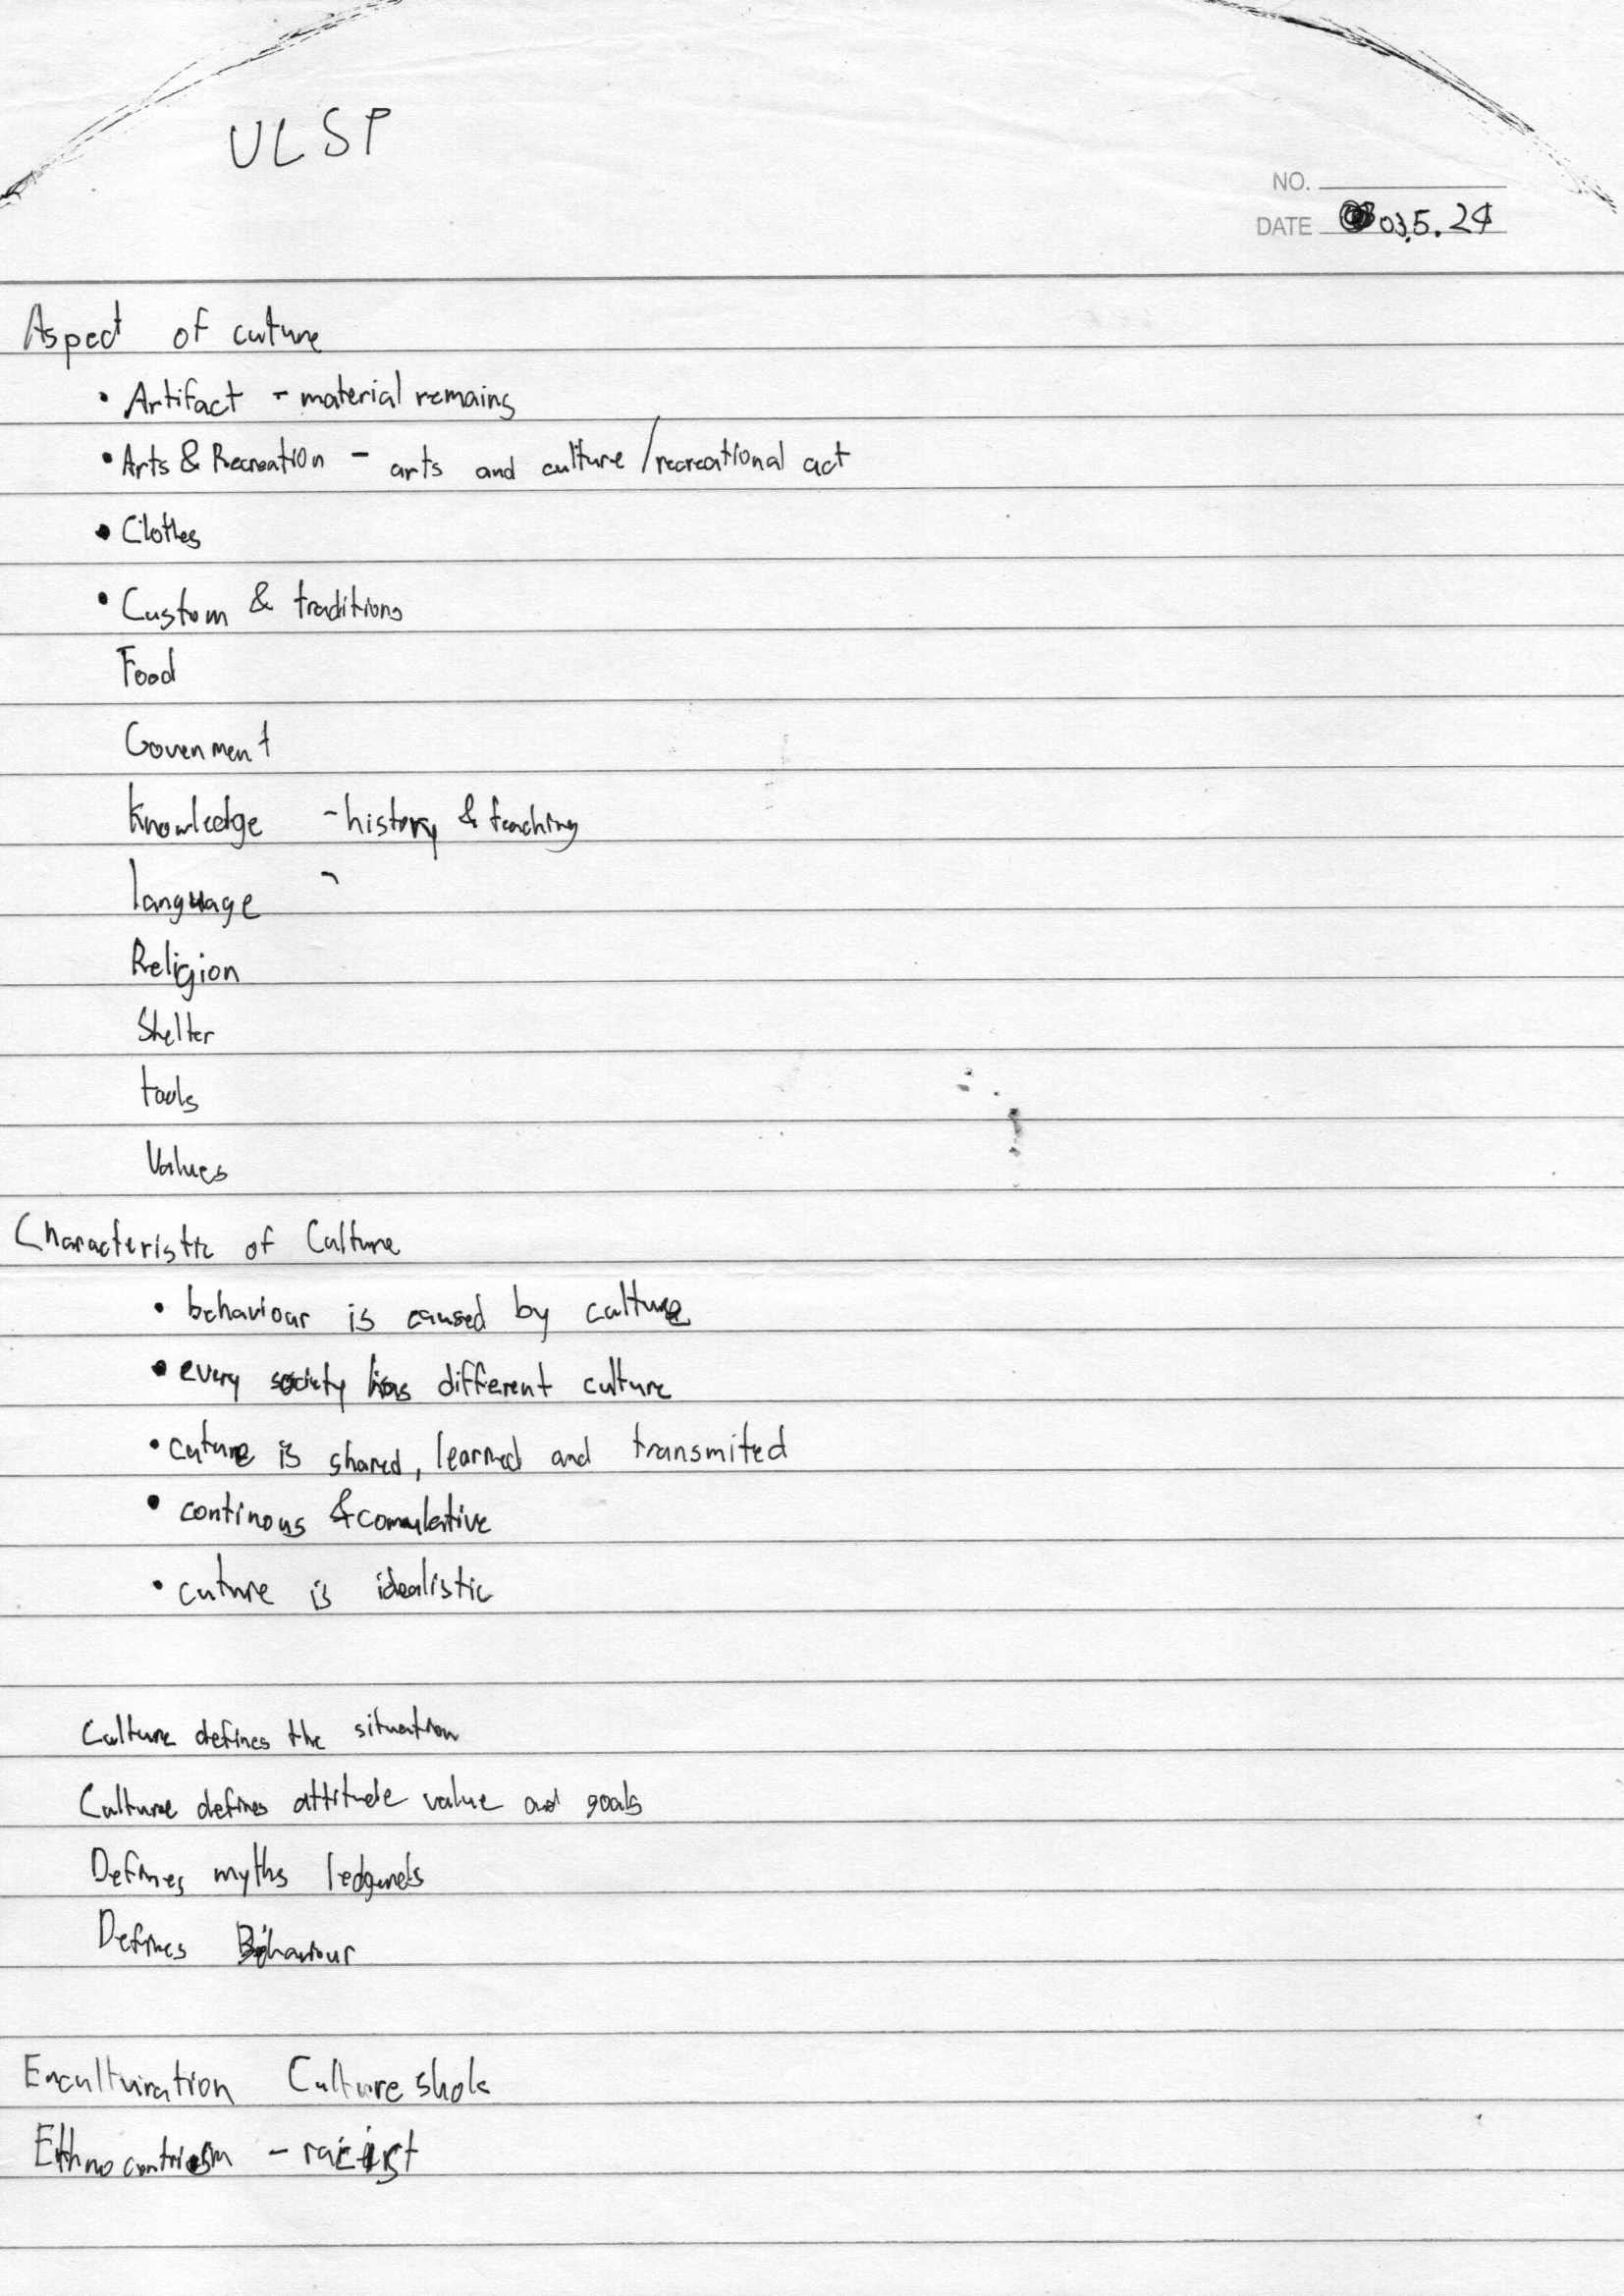 ULSP
NO.
DATE 03.5.24
Aspect of cuture
• Artifact - material remains
• Arts & Recreation - arts and culture / recreational act
• Clothes
• Custom & traditions
Food
Govenment
Knowledge - history & teaching
language -
Religion
Shelter
tools
Values
Characteristic of Culture
• behaviour is caused by culture
• every society has different culture
• cuture is shared, learned and transmited
• continous & comulative
• cuture is idealistic
Culture defines the situation
Culture defines attitude value and goals
Defines myths ledgends
Defines Behaviour
Enculturation Culture shok
Ethnocentrism - racist